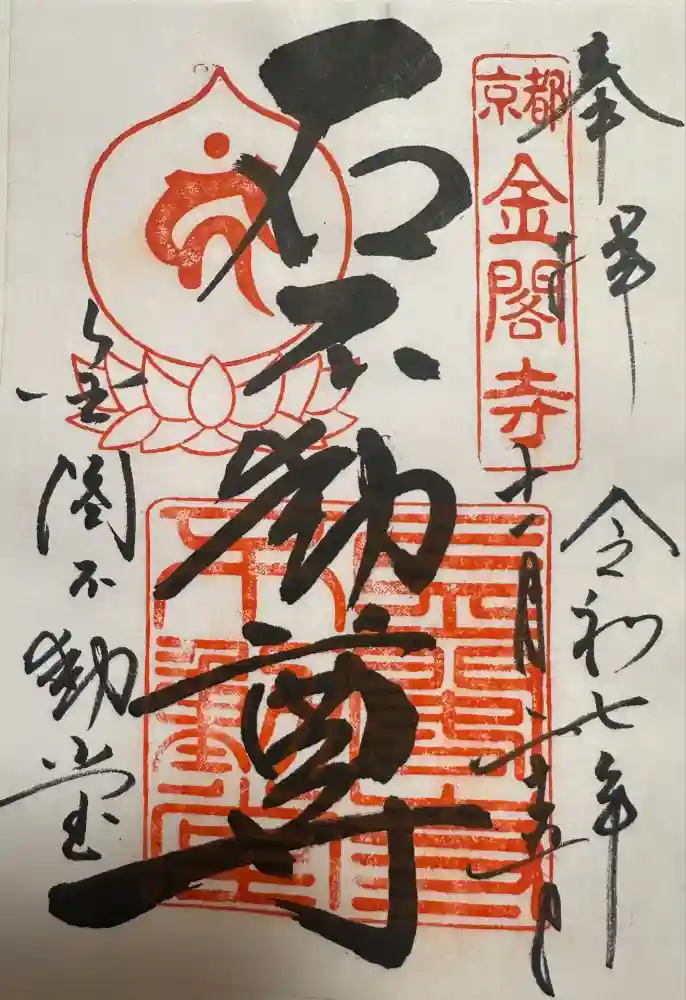 奉拝
令和七年
十一月二十五日
京都
金閣寺
石不動尊
金閣不動堂